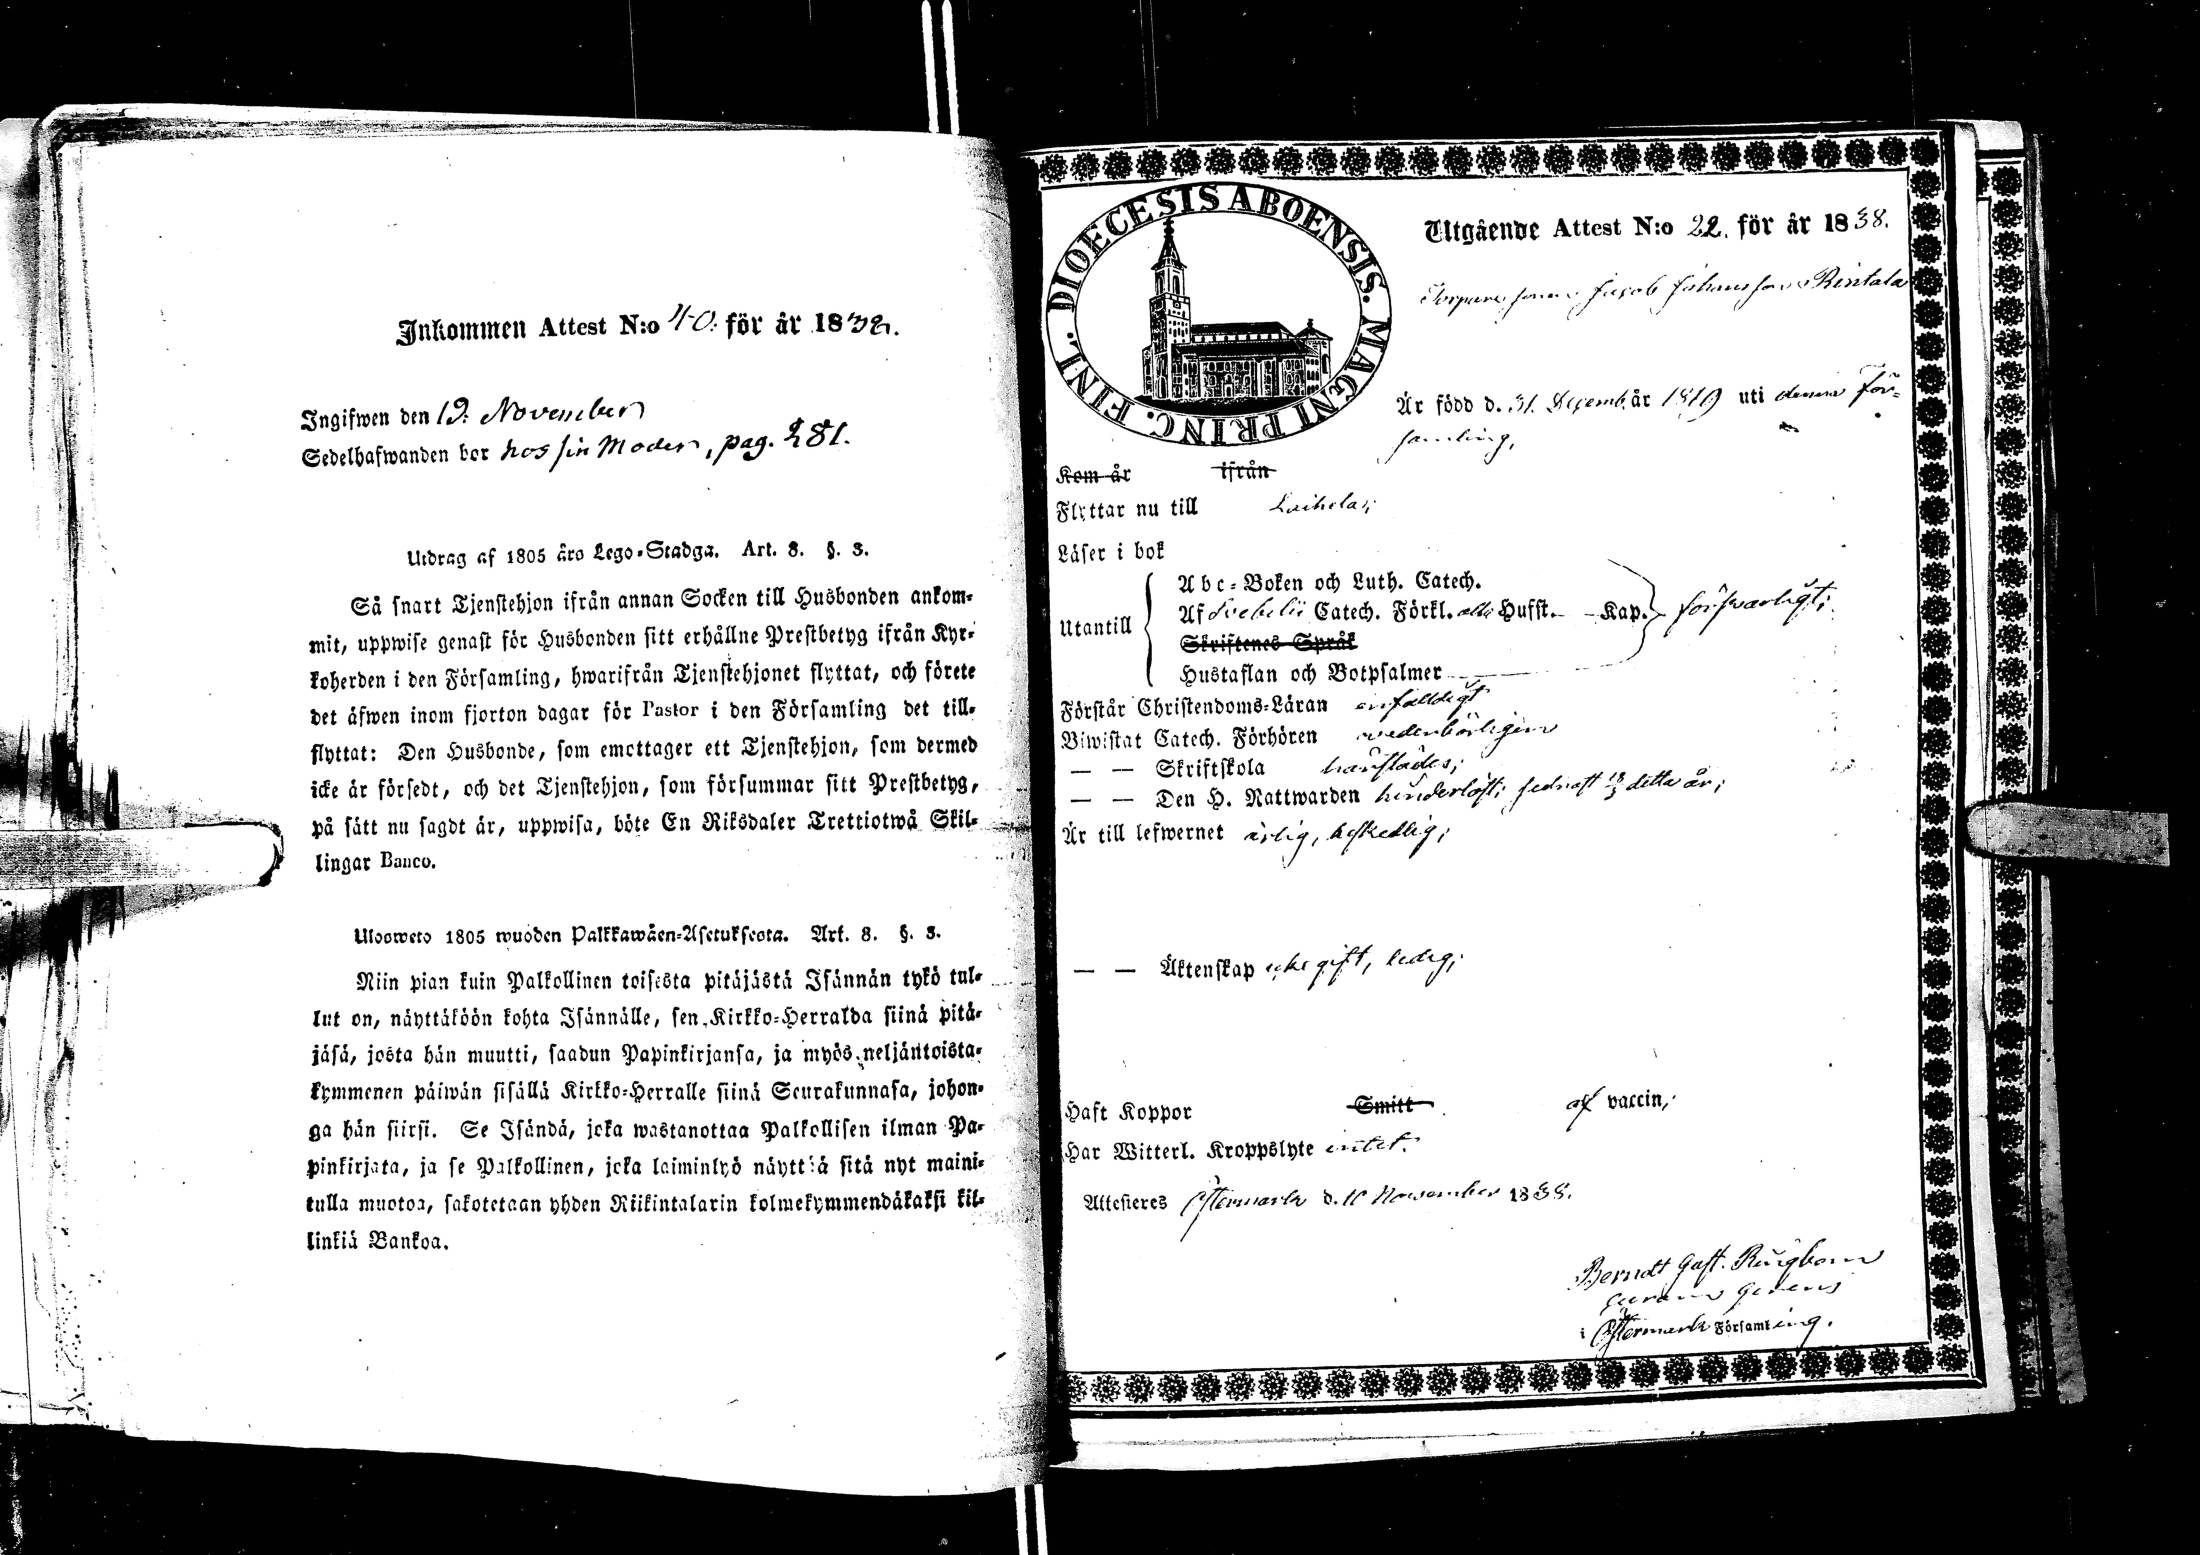 Inkommen Attest N:o 40. för år 1838.
Ingifwen den 19. November
Sedelhafwanden bor hos sin Moder, pag. 281.
Utdrag af 1805 års Lego-Stadga. Art. 8. §. 3.
Så snart Tjenstehjon ifrån annan Socken till Husbonden ankom-
mit, uppwise genast för Husbonden sitt erhållne Prestbetyg ifrån Kyr-
koherden i den Församling, hwarifrån Tjenstehjonet flyttat, och förete
det äfwen inom fjorton dagar för Pastor i den Församling det till-
flyttat: Den Husbonde, som emottager ett Tjenstehjon, som dermed
icke är försedt, och det Tjenstehjon, som försummar sitt Prestbetyg,
på sätt nu sagdt är, uppwisa, böte En Riksdaler Trettiotwå Skil-
lingar Banco.
Ulosweto 1805 wuoden Palkkawäen-Asetuksesta. Art. 8. §. 3.
Niin pian kuin Palkollinen toisesta pitäjästä Isännän tykö tul-
lut on, näyttäköön kohta Isännälle, sen Kirkko-Herralda siinä pitä-
jäsä, josta hän muutti, saadun Papinkirjansa, ja myös neljäntoista-
kymmenen päiwän sisällä Kirkko-Herralle siinä Seurakunnasa, johon-
ga hän siirsi. Se Isändä, joka wastanottaa Palkollisen ilman Pa-
pinkirjata, ja se Palkollinen, joka laiminlyö näyttää sitä nyt maini-
tulla muotoa, sakotetaan yhden Riikintalarin kolmekymmendäkaksi kil-
linkiä Bankoa.
DIOECESIS ABOENSIS. MAGNI PRINC. FINL.
Utgående Attest N:o 22. för år 1838.
Torpare sonen Jacob Johansson Rintala
Är född d. 31. Decemb. år 1819 uti denna För-
samling,
Kom år ifrån
Flyttar nu till Laihela;
Läser i bok
Utantill
Abc-Boken och Luth. Catech.
Af Svebelii Catech. Förkl. alla Husst. Kap. försvarligt;
Skriftenes Språk
Hustaflan och Botpsalmer
Förstår Christendoms-Läran enfaldigt
Biwistat Catech. Förhören vederbörligen
— — Skriftskola
— — Den H. Nattwarden hinderlöst; sednast 18/3 detta år;
Är till lefwernet ärlig, beskedlig;
— — Äktenskap icke gift, ledig;
Haft Koppor Smitt af vaccin;
Har Witterl. Kroppslyte intet.
Attesteres Östermark d. 10 November 1838.
Berndt Gust. Ringbom
i Östermark Församling.